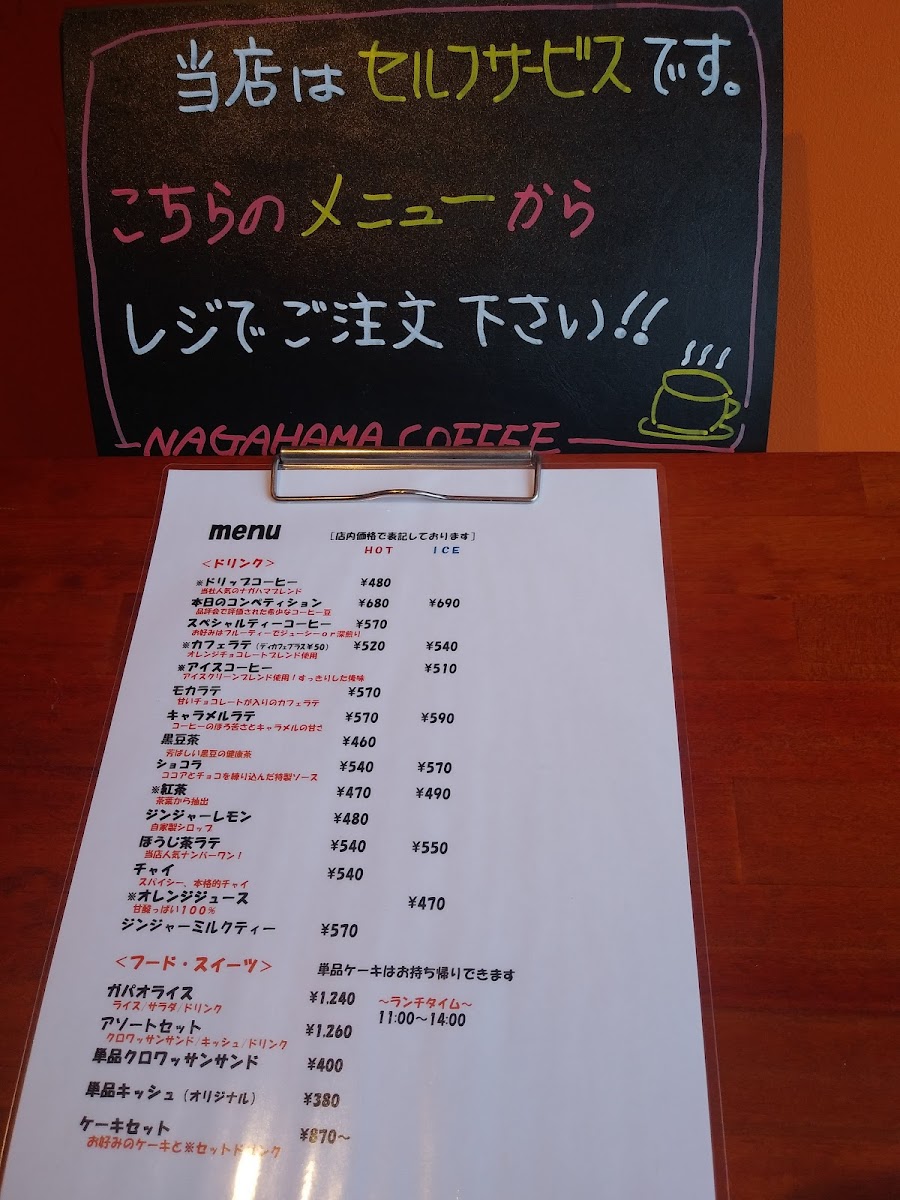 当店はセルフサービスです。
こちらのメニューから
レジでご注文下さい!!
NAGAHAMA COFFEE
menu [店内価格で表記しております]
HOT ICE
<ドリンク>
※ドリップコーヒー ¥480
当社人気のナガハマブレンド
本日のコンペティション ¥680 ¥690
品評会で評価された希少なコーヒー豆
スペシャルティーコーヒー ¥570
お好みはフルーティーでジューシーor深煎り
※カフェラテ (ディカフェプラス¥50) ¥520 ¥540
オレンジチョコレートブレンド使用
※アイスコーヒー ¥510
アイスクリーンブレンド使用!すっきりした後味
モカラテ ¥570
甘いチョコレートが入りのカフェラテ
キャラメルラテ ¥570 ¥590
コーヒーのほろ苦さとキャラメルの甘さ
黒豆茶 ¥460
芳ばしい黒豆の健康茶
ショコラ ¥540 ¥570
ココアとチョコを練り込んだ特製ソース
※紅茶 ¥470 ¥490
茶葉から抽出
ジンジャーレモン ¥480
自家製シロップ
ほうじ茶ラテ ¥540 ¥550
当店人気ナンバーワン!
チャイ ¥540
スパイシー、本格的チャイ
※オレンジジュース ¥470
甘酸っぱい100%
ジンジャーミルクティー ¥570
<フード・スイーツ> 単品ケーキはお持ち帰りできます
ガパオライス ¥1.240 ~ランチタイム~
ライス/サラダ/ドリンク 11:00~14:00
アソートセット ¥1.260
クロワッサンサンド/キッシュ/ドリンク
単品クロワッサンサンド ¥400
単品キッシュ(オリジナル) ¥380
ケーキセット ¥870~
お好みのケーキと※セットドリンク